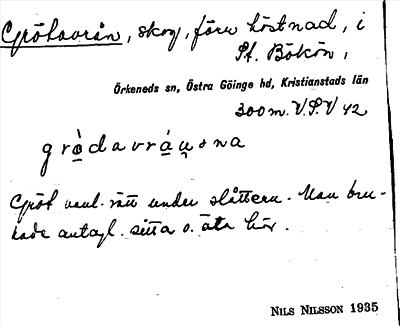 Grötavrån, skog, förr höstnad, i
St. Bökön,
Örkeneds sn, Östra Göinge hd, Kristianstads län
300 m. V.S.V 42
grødavrånna
Gröt vanl. rätt under slåttern. Man bru-
kade antagl. sitta o. äta här.
NILS NILSSON 1935